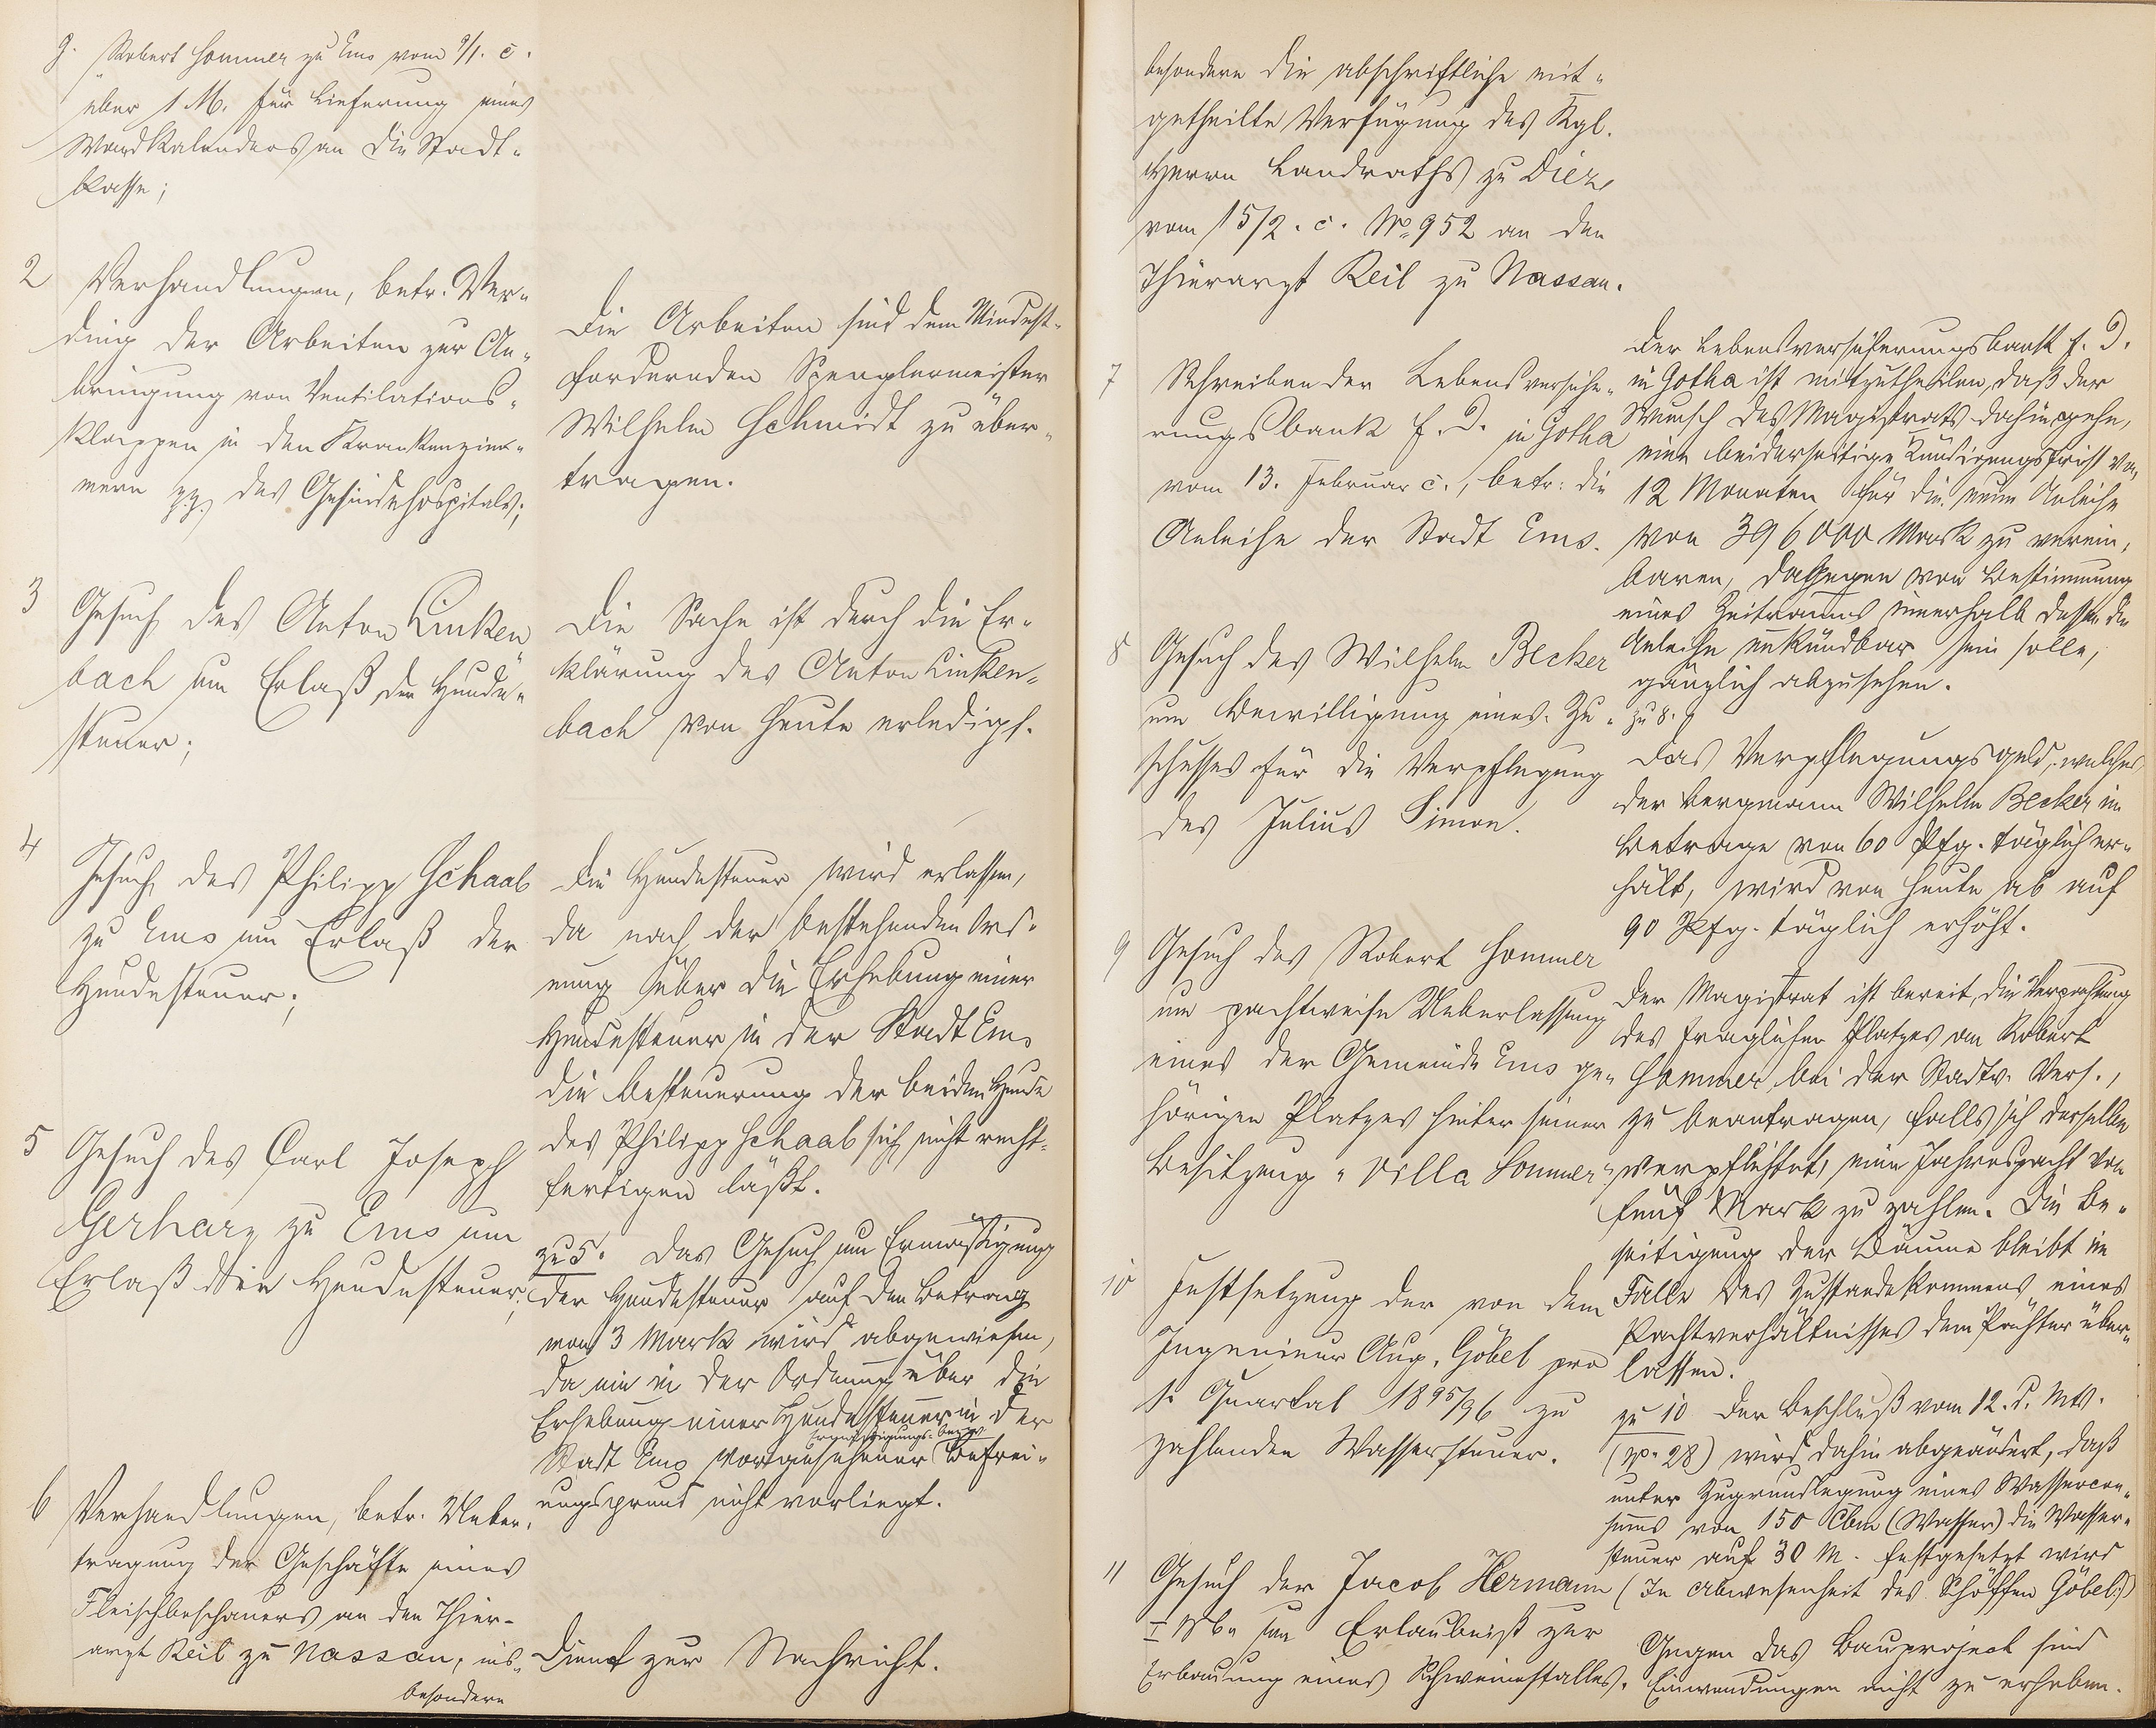 g. Robert Sommer zu Ems vom 9/1. c.
über 1 M. für Lieferung eines
Wandkalenders an die Stadt-
kasse;
2 Verhandlungen, betr. Ver-
ding der Arbeiten zur An-
bringung von Ventilations-
klappen in den Krankenzim-
mern pp. des Gesindehospitals;
Die Arbeiten sind dem Mindest-
fordernden Spenglermeister
Wilhelm Schmidt zu über-
tragen.
3 Gesuch des Anton Linken-
bach um Erlaß der Hunde-
steuer;
Die Sache ist durch die Er-
klärung des Anton Linken-
bach von heute erledigt.
4 Gesuch des Philipp Schaab
zu Ems um Erlaß der
Hundesteuer;
Die Hundesteuer wird erlassen,
da nach der bestehenden Ord-
nung über die Erhebung einer
Hundesteuer in der Stadt Ems
die Besteuerung der beiden Hunde
des Philipp Schaab sich nicht recht-
fertigen läßt.
5 Gesuch des Carl Joseph
Gerharz zu Ems um
Erlaß der Hundesteuer;
zu 5. Das Gesuch um Ermäßigung
der Hundesteuer auf den Betrag
von 3 Mark wird abgewiesen,
da ein in der Ordnung über die
Erhebung einer Hundesteuer in der
Ermäßigungs- bezw.
Stadt Ems vorgesehener Befrei-
ungsgrund nicht vorliegt.
6 Verhandlungen, betr. Ueber-
tragung der Geschäfte eines
Fleischbeschauers an den Thier-
arzt Keil zu Nassau, ins-
besondere
Dient zur Nachricht.
besondere die abschriftliche mit-
getheilte Verfügung des Kgl.
Herrn Landraths zu Diez
vom 15/2. c. No 952 an den
Thierarzt Keil zu Nassau.
7 Schreiben der Lebensversiche-
rungsbank f. D. in Gotha
vom 13. Februar c., betr: die
Anleihe der Stadt Ems.
Der Lebensversicherungsbank f. D.
in Gotha ist mitzutheilen, daß der
Wunsch des Magistrats dahin gehe,
eine beiderseitige Kündigungsfrist von
12 Monaten für die neue Anleihe
von 396000 Mark zu verein-
baren, dagegen von Bestimmung
eines Zeitraums innerhalb dessen die
Anleihe unkündbar sein solle,
gänzlich abzusehen.
8 Gesuch des Wilhelm Becker
um Bewilligung eines Zu-
schusses für die Verpflegung
des Julius Simon.
zu 8.
Das Verpflegungsgeld, welches
der Bergmann Wilhelm Becker im
Betrage von 60 Pfg. täglich er-
hält, wird von heute ab auf
90 Pfg. täglich erhöht.
9 Gesuch des Robert Sommer
um pachtweise Ueberlassung
eines der Gemeinde Ems ge-
hörigen Platzes hinter seiner
Besitzung "Villa Sommer".
Der Magistrat ist bereit, die Verpachtung
des fraglichen Platzes an Robert
Sommer bei der Stadtv. Vers.,
zu beantragen, falls sich derselbe
verpflichtet, eine Jahrespacht von
fünf Mark zu zahlen. Die Be-
seitigung der Bäume bleibt im
Falle des Zustandekommens eines
Pachtverhältnisses dem Pächter über-
lassen.
10 Festsetzung der von dem
Ingenieur Aug. Göbel pro
I. Quartal 1895/96 zu
zahlenden Wassersteuer.
zu 10 Der Beschluß vom 12. d. Mts.
(p. 28) wird dahin abgeändert, daß
unter Zugrundlegung eines Wassercon-
sums von 150 Cbm (Wasser) die Wasser-
steuer auf 30 M. festgesetzt wird
(In Abwesenheit des Schöffen Göbel.)
11 Gesuch der Jacob Hermann
I Wb. um Erlaubniß zur
Erbauung eines Schweinestalles.
Gegen das Bauproject sind
Einwendungen nicht zu erheben.